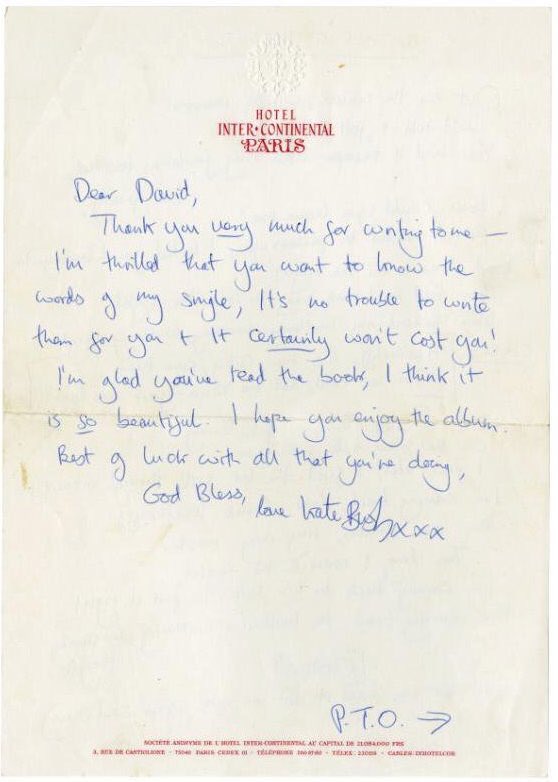 HOTEL
INTER•CONTINENTAL
PARIS
Dear David,
Thank you very much for writing to me —
I'm thrilled that you want to know the
words of my single, It's no trouble to write
them for you + It certainly won't cost you!
I'm glad you've read the book, I think it
is so beautiful. I hope you enjoy the album.
Best of luck with all that you're doing,
God Bless, love Kate Bush xxxx
P.T.O. →
SOCIÉTÉ ANONYME DE L'HOTEL INTER-CONTINENTAL AU CAPITAL DE 21.084.000 FRS
3, RUE DE CASTIGLIONE - 75040 PARIS CEDEX 01 - TÉLÉPHONE 260-37-80 - TÉLEX 220114 - CABLES: INHOTELCOR